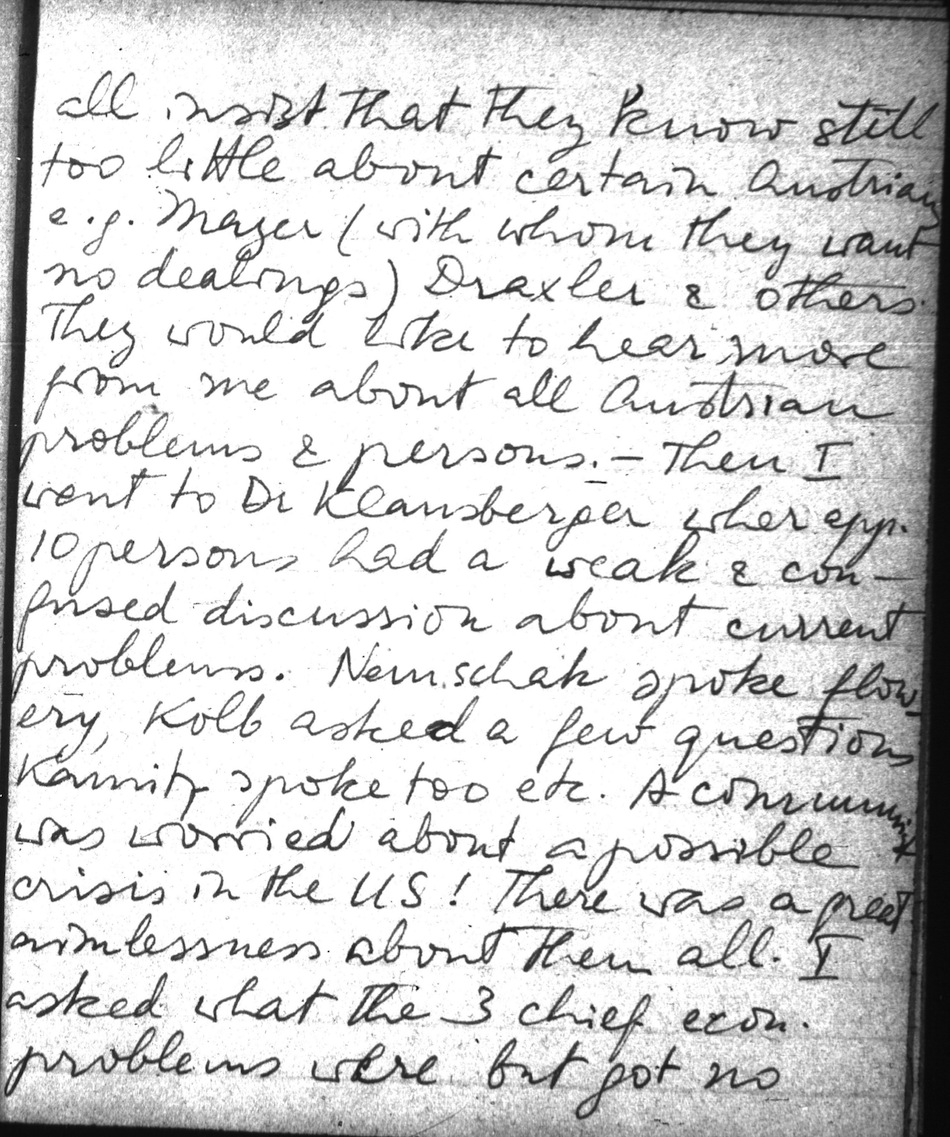 all insist that they know still
too little about certain Austrians
e.g. Mayer (with whom they want
no dealings) Draxler & others.
They would like to hear more
from me about all Austrian
problems & persons. – Then I
went to Dr Klausberger wher app.
10 persons had a weak & con-
fused discussion about current
problems. Nemschak spoke flow-
ery, Kolb asked a few questions
Kamitz spoke too etc. A communist
was worried about a possible
crisis in the US! There was a great
aimlessness about them all. I
asked what the 3 chief econ.
problems were but got no